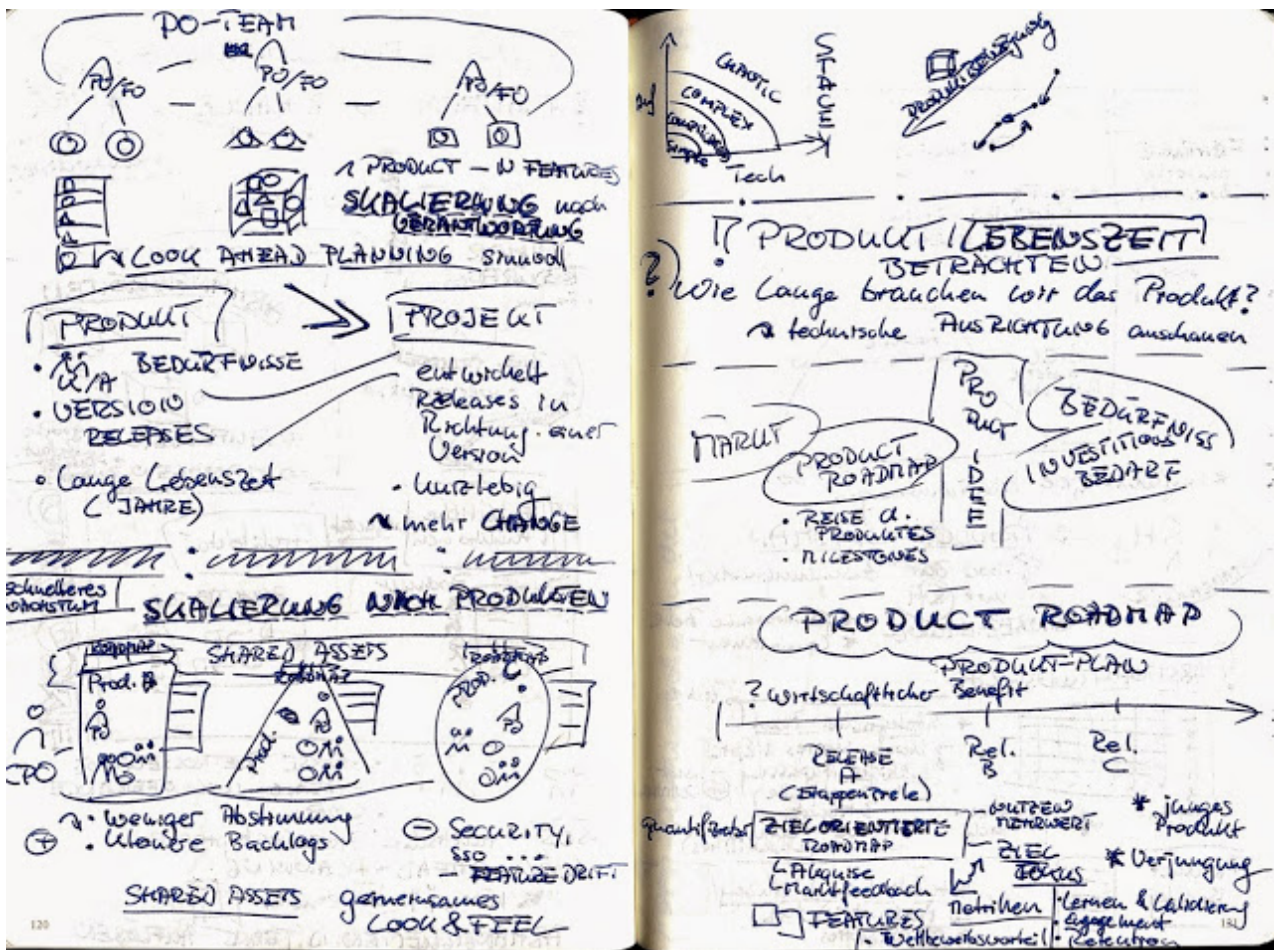 PO-TEAM
PO/FO
PO/FO
PO/FO
1 PRODUCT - N FEATURES
SKALIERUNG nach
VERANTWORTUNG
LOOK AHEAD PLANNING sinnvoll
PRODUKT
PROJEKT
BEDÜRFNISSE
K/A
• VERSION
RELEASES
• Lange Lebenszeit
(JAHRE)
entwickelt
Releases in
Richtung einer
Version
• kurzlebig
mehr CHANGE
schnelleres
WACHSTUM
SKALIERUNG NACH PRODUKTEN
SHARED ASSETS
ROADMAP
ROADMAP
ROADMAP
Prod.
Prod.
PROD.
PO
PO
PO
CPO
• weniger Abstimmung
• kleinere Backlogs
SECURITY,
SSO ...
FEATURE DRIFT
SHARED ASSETS gemeinsames
LOOK & FEEL
120
CHAOTIC
COMPLEX
COMPLICATED
Simple
Tech
STACEY
!? PRODUKT LEBENSZEIT
BETRACHTEN
? Wie lange brauchen wir das Produkt?
technische AUSRICHTUNG anschauen
MARKT
PRODUCT
ROADMAP
• REISE d.
PRODUKTES
MILESTONES
PRODUCT
IDEE
BEDÜRFNISS
INVESTITIONS
BEDARF
PRODUCT ROADMAP
PRODUKT-PLAN
? wirtschaftlicher Benefit
RELEASE
A
(Etappenziele)
Rel.
B
Rel.
C
quantifizierbar
ZIELORIENTIERTE
ROADMAP
Akquise
Marktfeedback
FEATURES
• Wettbewerbsvorteil
NUTZEN
MEHRWERT
ZIEL
FOKUS
Metriken
* junges
Produkt
* Verjüngung
• Lernen & Validierung
• Engagement
• Retention